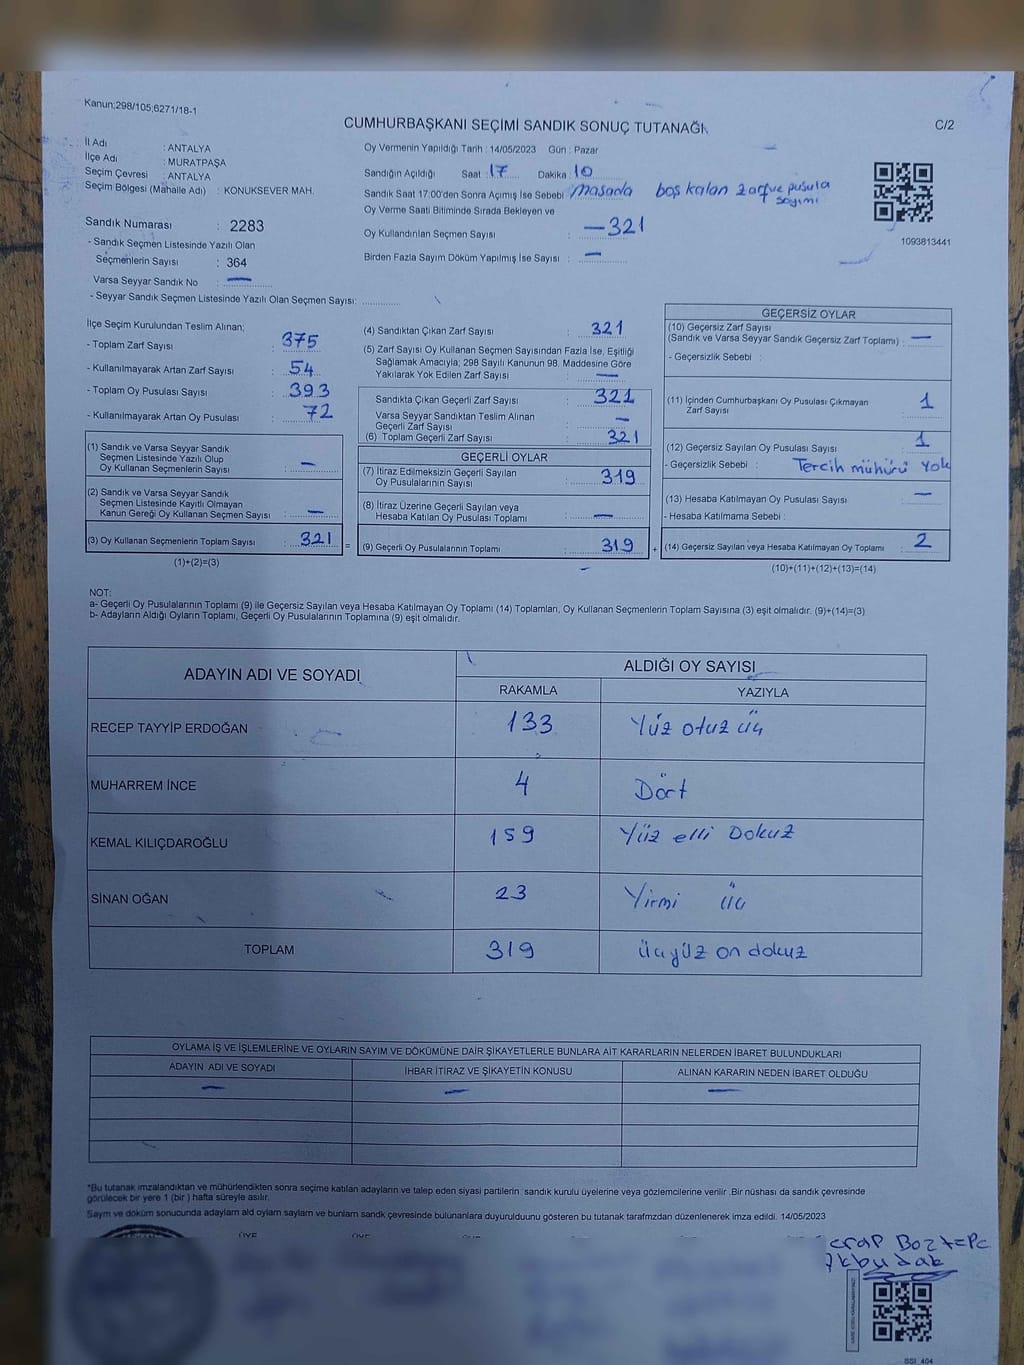 Kanun;298/105;6271/18-1
CUMHURBAŞKANI SEÇİMİ SANDIK SONUÇ TUTANAĞI
C/2
İl Adı : ANTALYA
İlçe Adı : MURATPAŞA
Seçim Çevresi : ANTALYA
Seçim Bölgesi (Mahalle Adı) : KONUKSEVER MAH.
Sandık Numarası : 2283
- Sandık Seçmen Listesinde Yazılı Olan
Seçmenlerin Sayısı : 364
Varsa Seyyar Sandık No : —
- Seyyar Sandık Seçmen Listesinde Yazılı Olan Seçmen Sayısı: ............
Oy Vermenin Yapıldığı Tarih : 14/05/2023 Gün : Pazar
Sandığın Açıldığı Saat : 17 Dakika : 10
Sandık Saat 17:00'den Sonra Açmış İse Sebebi : masada boş kalan zarf ve pusula
sayımı
Oy Verme Saati Bitiminde Sırada Bekleyen ve
Oy Kullandırılan Seçmen Sayısı : —321
Birden Fazla Sayım Döküm Yapılmış İse Sayısı : —
1093813441
İlçe Seçim Kurulundan Teslim Alınan;
- Toplam Zarf Sayısı : 375
- Kullanılmayarak Artan Zarf Sayısı : 54
- Toplam Oy Pusulası Sayısı : 393
- Kullanılmayarak Artan Oy Pusulası : 72
(1) Sandık ve Varsa Seyyar Sandık
Seçmen Listesinde Yazılı Olup
Oy Kullanan Seçmenlerin Sayısı : —
(2) Sandık ve Varsa Seyyar Sandık
Seçmen Listesinde Kayıtlı Olmayan
Kanun Gereği Oy Kullanan Seçmen Sayısı : —
(3) Oy Kullanan Seçmenlerin Toplam Sayısı : 321
(1)+(2)=(3)
=
(4) Sandıktan Çıkan Zarf Sayısı : 321
(5) Zarf Sayısı Oy Kullanan Seçmen Sayısından Fazla İse, Eşitliği
Sağlamak Amacıyla; 298 Sayılı Kanunun 98. Maddesine Göre
Yakılarak Yok Edilen Zarf Sayısı : —
Sandıkta Çıkan Geçerli Zarf Sayısı : 321
Varsa Seyyar Sandıktan Teslim Alınan
Geçerli Zarf Sayısı : —
(6) Toplam Geçerli Zarf Sayısı : 321
GEÇERLİ OYLAR
(7) İtiraz Edilmeksizin Geçerli Sayılan
Oy Pusulalarının Sayısı : 319
(8) İtiraz Üzerine Geçerli Sayılan veya
Hesaba Katılan Oy Pusulası Toplamı : —
(9) Geçerli Oy Pusulalarının Toplamı : 319
+
GEÇERSİZ OYLAR
(10) Geçersiz Zarf Sayısı
(Sandık ve Varsa Seyyar Sandık Geçersiz Zarf Toplamı) : —
- Geçersizlik Sebebi :
(11) İçinden Cumhurbaşkanı Oy Pusulası Çıkmayan
Zarf Sayısı : 1
(12) Geçersiz Sayılan Oy Pusulası Sayısı : 1
- Geçersizlik Sebebi : Tercih mühürü Yok
(13) Hesaba Katılmayan Oy Pusulası Sayısı : —
- Hesaba Katılmama Sebebi :
(14) Geçersiz Sayılan veya Hesaba Katılmayan Oy Toplamı : 2
(10)+(11)+(12)+(13)=(14)
NOT:
a- Geçerli Oy Pusulalarının Toplamı (9) ile Geçersiz Sayılan veya Hesaba Katılmayan Oy Toplamı (14) Toplamları, Oy Kullanan Seçmenlerin Toplam Sayısına (3) eşit olmalıdır. (9)+(14)=(3)
b- Adayların Aldığı Oyların Toplamı, Geçerli Oy Pusulalarının Toplamına (9) eşit olmalıdır.
ADAYIN ADI VE SOYADI ALDIĞI OY SAYISI
RAKAMLA YAZIYLA
RECEP TAYYİP ERDOĞAN 133 Yüz otuz üç
MUHARREM İNCE 4 Dört
KEMAL KILIÇDAROĞLU 159 Yüz elli Dokuz
SİNAN OĞAN 23 Yirmi üç
TOPLAM 319 üçyüz on dokuz
OYLAMA İŞ VE İŞLEMLERİNE VE OYLARIN SAYIM VE DÖKÜMÜNE DAİR ŞİKAYETLERLE BUNLARA AİT KARARLARIN NELERDEN İBARET BULUNDUKLARI
ADAYIN ADI VE SOYADI İHBAR İTİRAZ VE ŞİKAYETİN KONUSU ALINAN KARARIN NEDEN İBARET OLDUĞU
— — —
*Bu tutanak imzalandıktan ve mühürlendikten sonra seçime katılan adayların ve talep eden siyasi partilerin sandık kurulu üyelerine veya gözlemcilerine verilir .Bir nüshası da sandık çevresinde
görülecek bir yere 1 (bir ) hafta süreyle asılır.
Sayım ve döküm sonucunda adayların ald oyların sayların ve bunların sandk çevresinde bulunanlara duyurulduunu gösteren bu tutanak tarafmzdan düzenlenerek imza edildi. 14/05/2023
ÜYE ÜYE
SSI 404